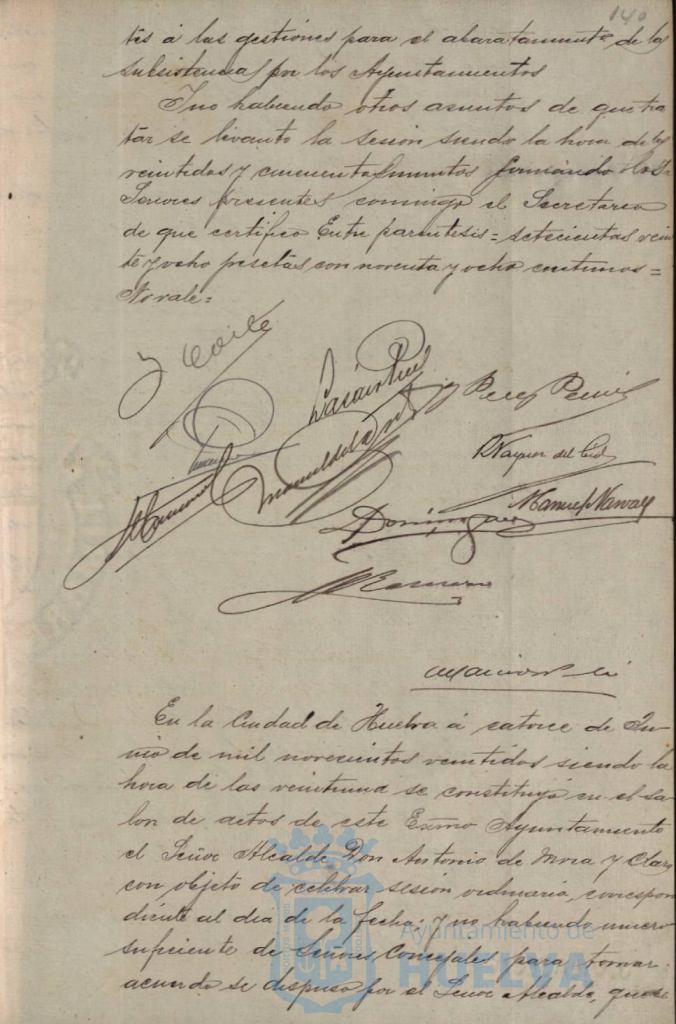 140
tes á las gestiones para el abaratamiento de las
subsistencias por los Ayuntamientos
Y no habiendo otros asuntos de que tra
tar se levantó la sesion siendo la hora de las
veintidos y cincuenta minutos firmando los
Señores presentes conmigo el Secretario
de que certifico Entre parentesis = setecientas vein
te y ocho pesetas con noventa y ocho centimos =
No vale =
Perez
Vazquez del Cid
Manuel Narvaez
Dominguez
En la Ciudad de Huelva á catorce de Ju-
nio de mil novecientos veintidos siendo la
hora de las veintiuna se constituyó en el sa-
lon de actos de este Exmo Ayuntamiento
el Señor Alcalde Don Antonio de Mora y Claros
con objeto de celebrar sesión ordinaria, correspon
diente al dia de la fecha; y no habiendo numero
suficiente de Señores Concejales para tomar
acuerdo se dispuso por el Señor Alcalde, que se
Ayuntamiento de
HUELVA